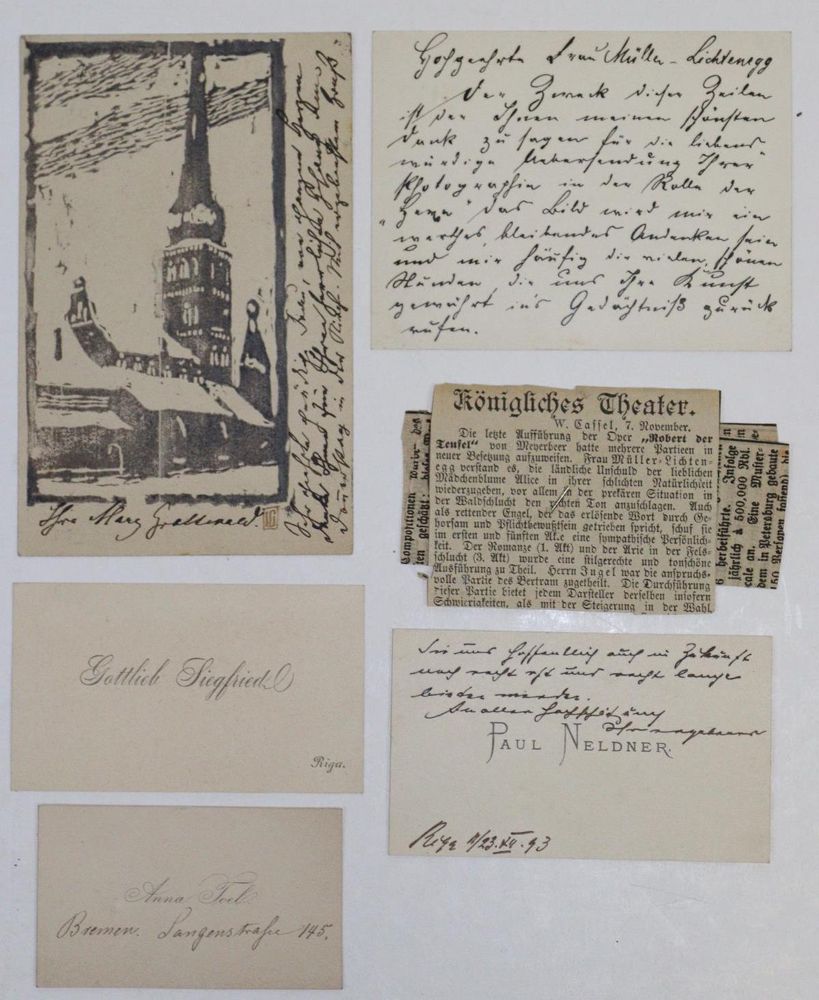 Ihre Mary Grottewald.
Hochgeehrte Frau Müller-Lichtenegg
Der Zweck dieser Zeilen
ist der Ihnen meinen schönsten
Dank zu sagen für die liebens-
würdige Uebersendung Ihrer
Photographie in der Rolle der
das Bild wird mir ein
werthes, bleibendes Andenken sein
und mir häufig die vielen, schönen
Stunden, die uns Ihre Kunst
gewährt in's Gedächtniß zurück
rufen.
Königliches Theater.
W. Cassel, 7. November.
Die letzte Aufführung der Oper „Robert der
Teufel" von Meyerbeer hatte mehrere Partieen in
neuer Besetzung aufzuweisen. Frau Müller-Lichten-
egg verstand es, die ländliche Unschuld der lieblichen
Mädchenblume Alice in ihrer schlichten Natürlichkeit
wiederzugeben, vor allem in der prekären Situation in
der Waldschlucht den echten Ton anzuschlagen. Auch
als rettender Engel, der das erlösende Wort durch Ge-
horsam und Pflichtbewußtsein getrieben spricht, schuf sie
im ersten und fünften Akte eine sympathische Persönlich-
keit. Der Romanze (1. Akt) und der Arie in der Fels-
schlucht (3. Akt) wurde eine stilgerechte und tonschöne
Ausführung zu Theil. Herrn Ingel war die anspruchs-
volle Partie des Bertram zugetheilt. Die Durchführung
dieser Partie bietet jedem Darsteller derselben insofern
Schwierigkeiten, als mit der Steigerung in der Wahl
Compositionen
ten geschätzt:
herbeiführte. Infolge
jährlich à 500,000 Rbl.
cale an. Eine Muster-
dem in Petersburg gebaute
150 Personen
Gottlieb Siegfried
Riga.
Sie uns hoffentlich auch in Zukunft
noch recht oft und recht lange
bieten werden.
In aller Hochschätzung
Ihr ergebener
PAUL NELDNER.
Riga 11/23.XII.93
Anna Toel
Bremen. Langenstraße 145.